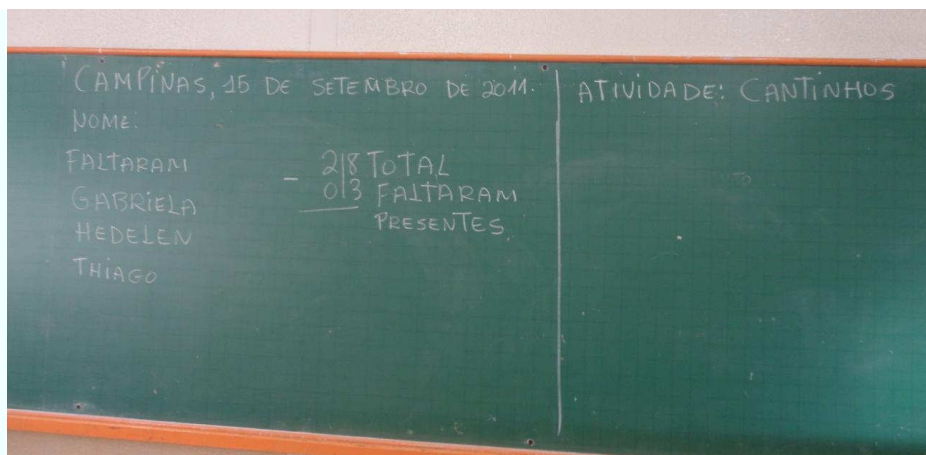 CAMPINAS, 15 DE SETEMBRO DE 2011.
NOME:
FALTARAM
GABRIELA
HEDELEN
THIAGO
- 2|8 TOTAL
0|3 FALTARAM
PRESENTES.
ATIVIDADE: CANTINHOS